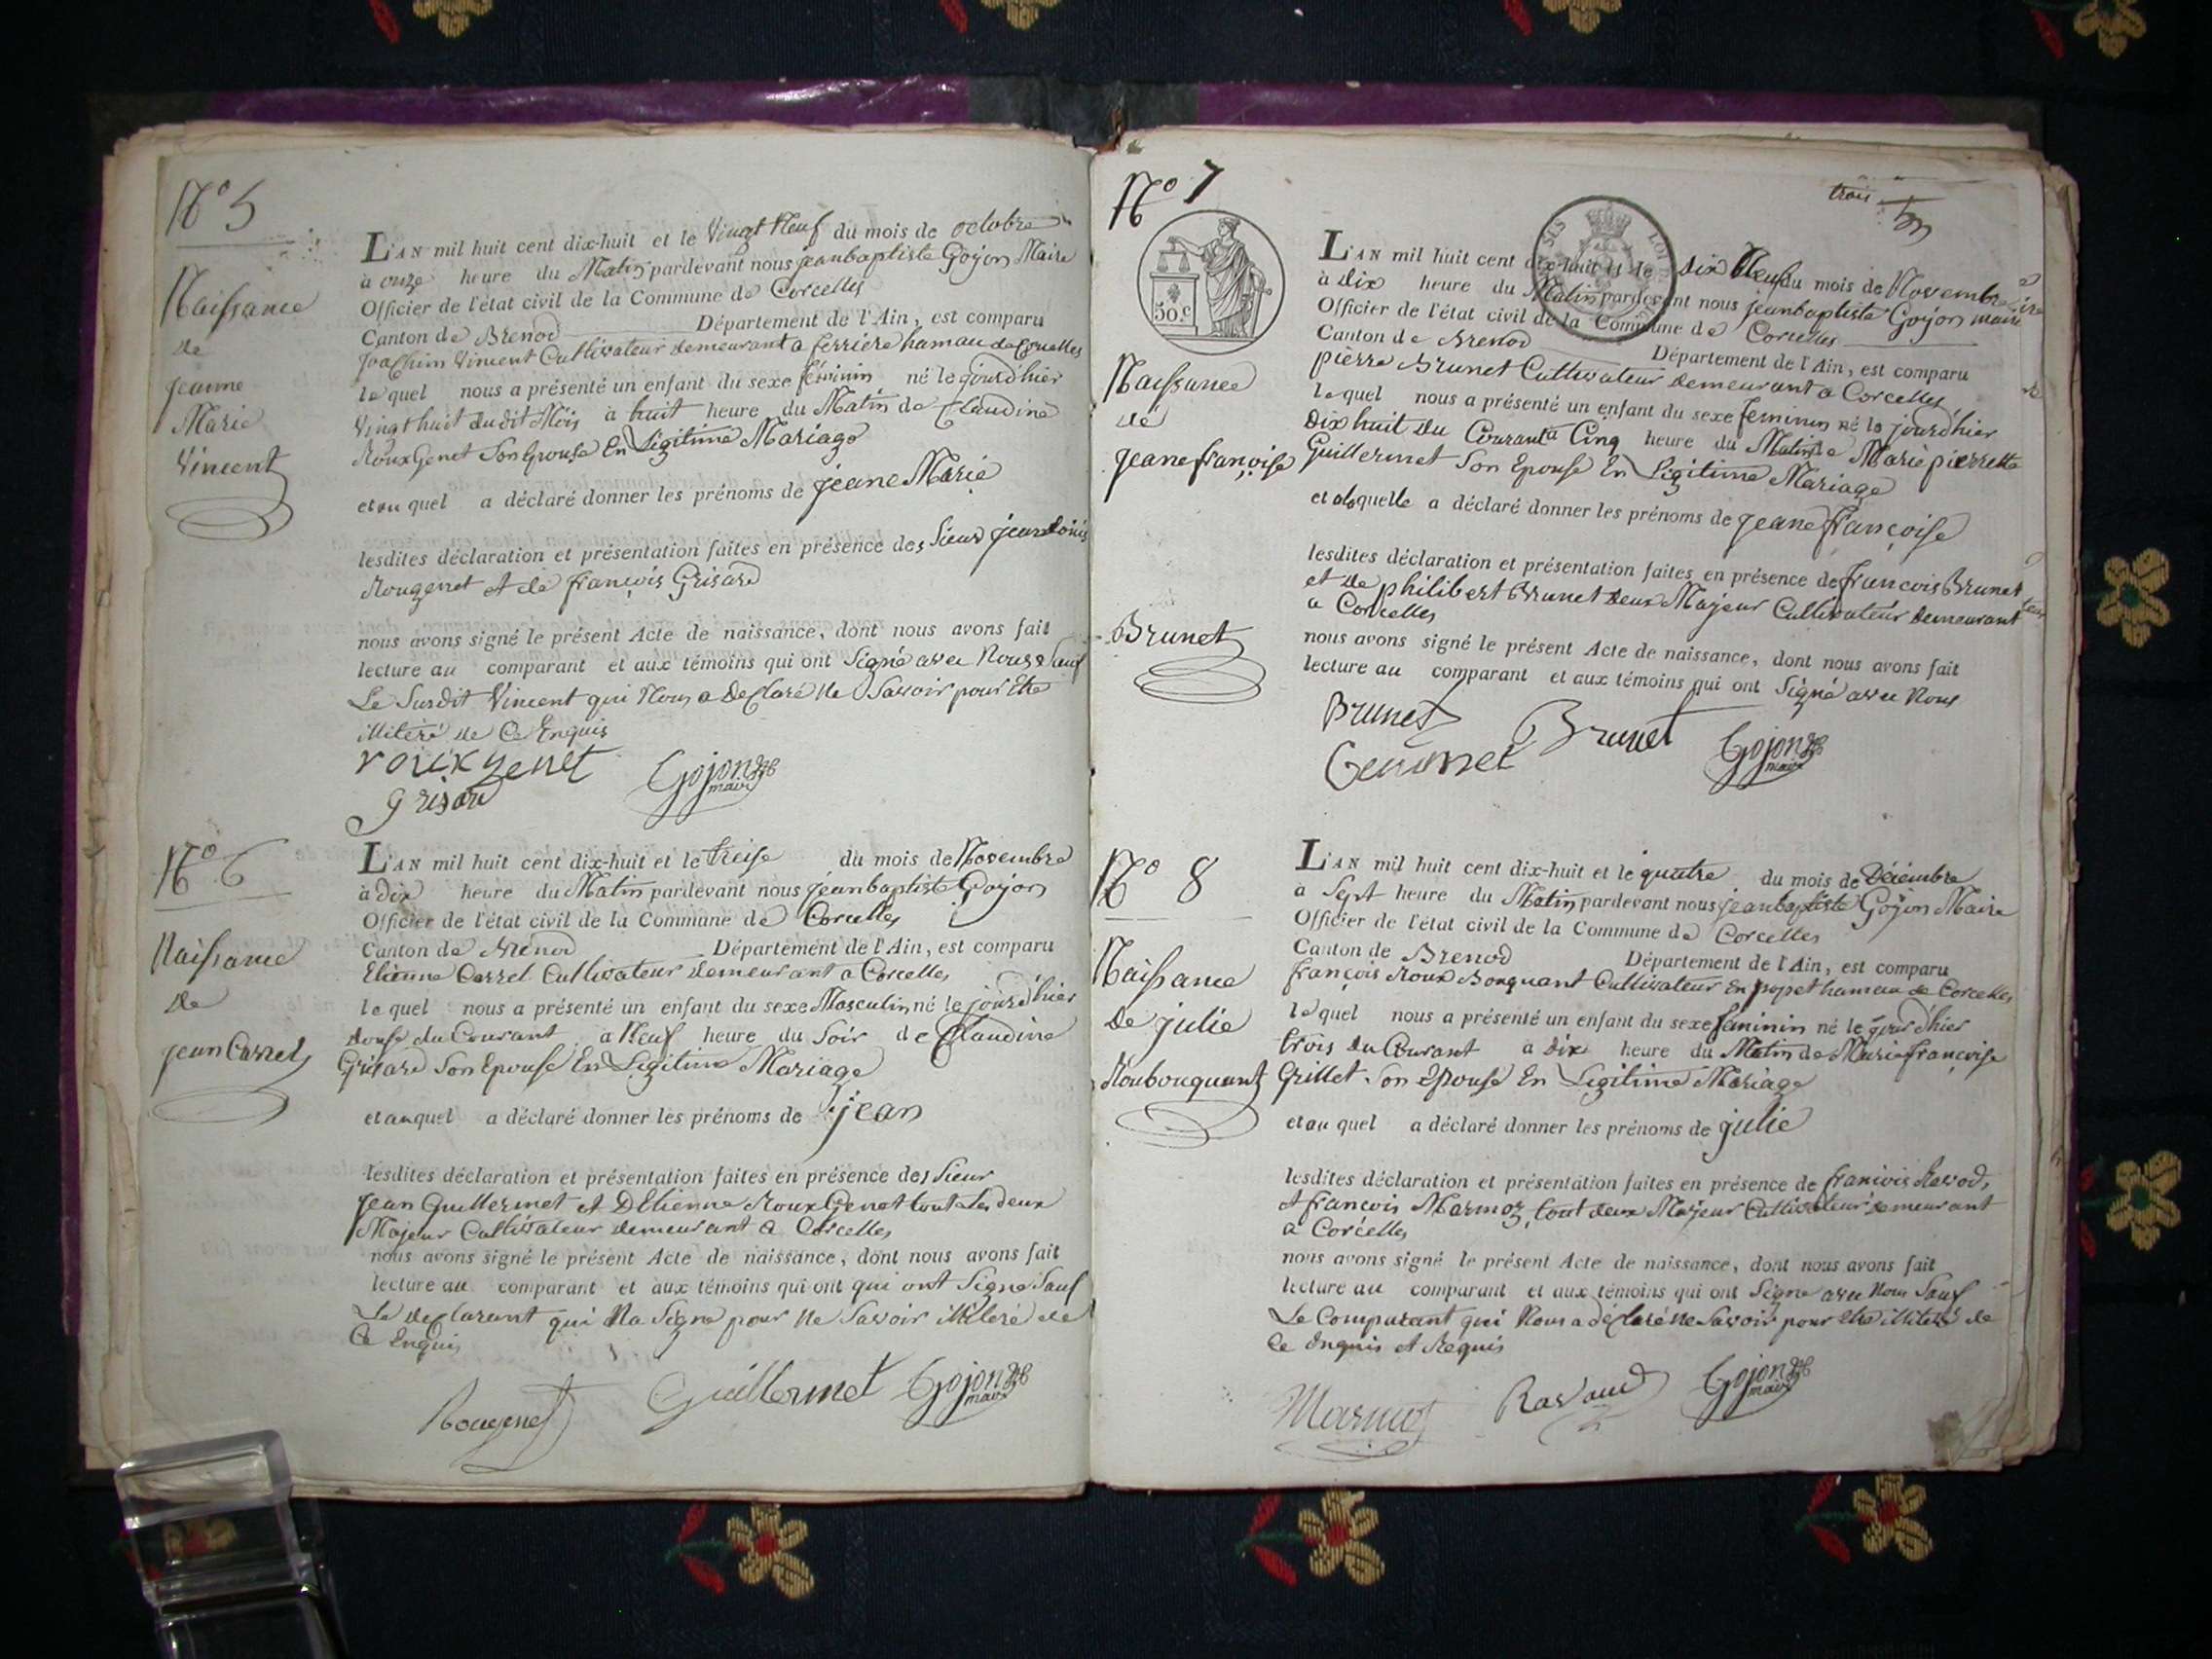 N.o 5
Naissance
de
jeanne
Marie
Vincent
L'AN mil huit cent dix-huit et le Vingt Neuf du mois de octobre
à onze heure du Matin pardevant nous jeanbaptiste Gojon Maire
Officier de l'état civil de la Commune de Corcelles
Canton de Brenod Département de l'Ain, est comparu
Joachim Vincent Cultivateur demeurant a ferriere hamau de Corcelles
lequel nous a présenté un enfant du sexe féminin né le jourd'hier
Vingt huit dudit Mois à huit heure du Matin de Claudine
RouxGenet Son Epouse En Légitime Mariage
et au quel a déclaré donner les prénoms de jeane Marie
lesdites déclaration et présentation faites en présence des Sieur jean Louis
Rougenet et de françois Grisard
nous avons signé le présent Acte de naissance, dont nous avons fait
lecture au comparant et aux témoins qui ont Signé avec Nous Sauf
Le Susdit Vincent qui Nous a Declaré Ne Savoir pour Etre
illiteré de Ce Enquis
rouxgenet
grisard
Gojon
maire
N.o 6
Naissance
de
jean Carrel
L'AN mil huit cent dix-huit et le treise du mois de Novembre
à dix heure du Matin pardevant nous jeanbaptiste Gojon
Officier de l'état civil de la Commune de Corcelles
Canton de Brénod Département de l'Ain, est comparu
Etienne Carrel Cultivateur demeurant a Corcelles
lequel nous a présenté un enfant du sexe Masculin né le jourd'hier
douse du Courant à Neuf heure du Soir de Claudine
Grisard Son Epouse En Legitime Mariage
et au quel a déclaré donner les prénoms de jean
lesdites déclaration et présentation faites en présence des Sieur
jean Guillermet et D'Etienne RouxGenet tout Les deux
Majeur Cultivateur demeurant a Corcelles
nous avons signé le présent Acte de naissance, dont nous avons fait
lecture au comparant et aux témoins qui ont qui ont Signe Sauf
Le declarant qui Na Signe pour Ne Savoir illiteré de
Ce Enquis
Rougenet
Guillermet
Gojon
maire
N.o 7
trois
50.c
Naissance
de
jeane françoise
Brunet
L'AN mil huit cent dix-huit et le Dix Neuf du mois de Novembre
à dix heure du Matin pardevant nous jeanbaptiste Gojon maire
Officier de l'état civil de la Commune de Corcelles
Canton de Brenod Département de l'Ain, est comparu
pierre Brunet Cultivateur demeurant a Corcelles
lequel nous a présenté un enfant du sexe feminin né le jourd'hier
Dix huit du Courant à Cinq heure du Matin de Marie pierrette
Guillermet Son Epouse En Légitime Mariage
et alaquelle a déclaré donner les prénoms de jeane françoise
lesdites déclaration et présentation faites en présence de francois Brunet
et de philibert Brunet deux Majeur Cultivateur demeurant
a Corcelles
nous avons signé le présent Acte de naissance, dont nous avons fait
lecture au comparant et aux témoins qui ont Signé avec Nous
Brunet
Brunet
Gojon
maire
N.o 8
Naissance
de julie
Roubouquant
L'AN mil huit cent dix-huit et le quatre du mois de Décembre
à Sept heure du Matin pardevant nous jeanbaptiste Gojon Maire
Officier de l'état civil de la Commune de Corcelles
Canton de Brenod Département de l'Ain, est comparu
françois Roux Bouquant Cultivateur En popet hameau de Corcelles
lequel nous a présenté un enfant du sexe féminin né le jourd'hier
trois du Courant à dix heure du Matin de Marie françoise
Grillet Son Epouse En Legitime Mariage
et au quel a déclaré donner les prénoms de julie
lesdites déclaration et présentation faites en présence de francois Ravod,
et françois Marmoz, tout deux Majeur Cultivateur demeurant
a Corcelles
nous avons signé le présent Acte de naissance, dont nous avons fait
lecture au comparant et aux témoins qui ont Signe avec Nous Sauf
Le Comparant qui Nous a déclaré Ne Savoir pour Etre illiteré de
Ce Enquis et Requis
Ravaud
Gojon
maire